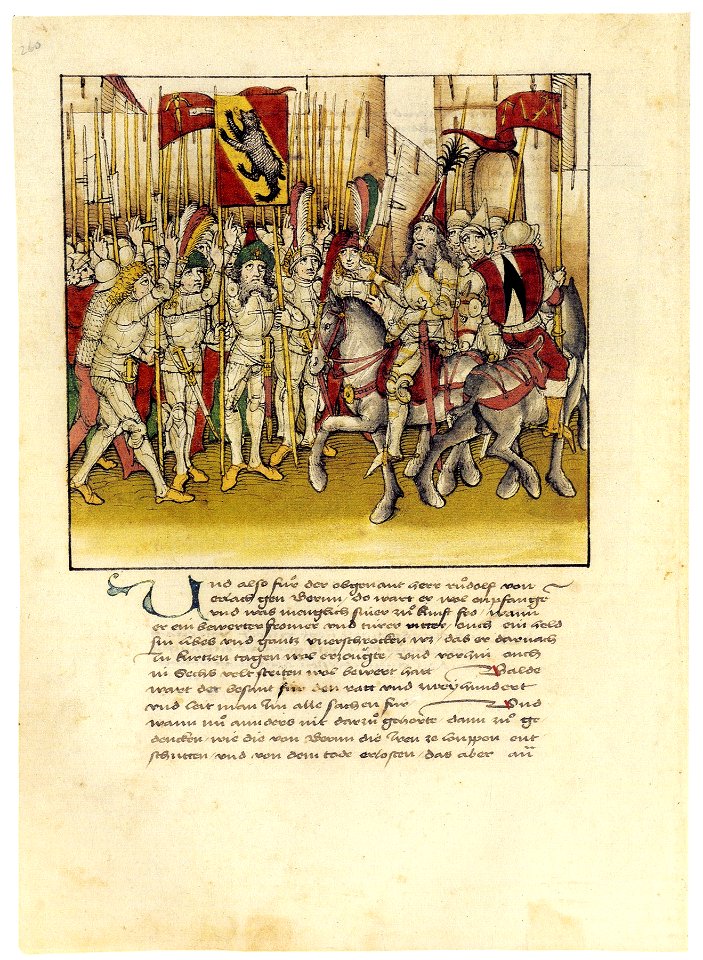 260
Und also fůr der obgenant herr růdolf von
erlach gen Bernn / do wart er wol enpfange
vnd was menglich siner zů kunft fro / wann
er ein bewerter fromer vnd türer ritter / ouch ein held
sin libes vnd gantz vnerschrocken waz / das er darnach
In kurtzen tagen wol erzöugte / und vorhin ouch
in Sechs velt striten wol bewert hatt Balde
wart der besant für den ratt vnd zweÿhundert
vnd leit man Im alle sachen für Und
wann nů annders nit darzů gehorte / dann zů ge
dencken / wie die von Bernn die Iren ze louppen ent
schutten / vnd von dem tode erlosten / das aber an